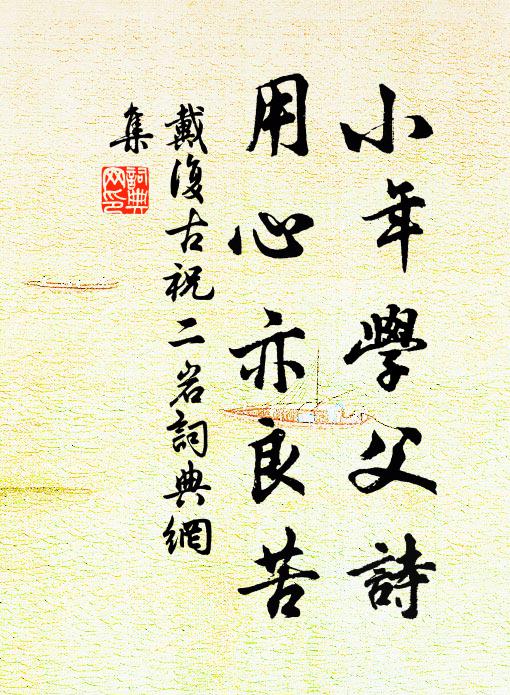 小年學父詩
用心亦良苦
戴復古祝二岩詞典網
集
詞典
网印